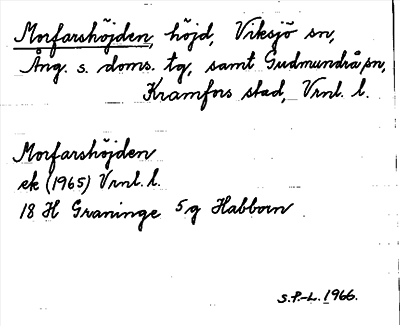 Morfarshöjden, höjd, Viksjö sn,
Ång. s. doms. tg, samt Gudmundrå sn,
Kramfors stad, Vrnl. l.
Morfarshöjden
ek (1965) Vrnl. l.
18 H Graninge 5 g Habborn
S.P.-L. 1966.